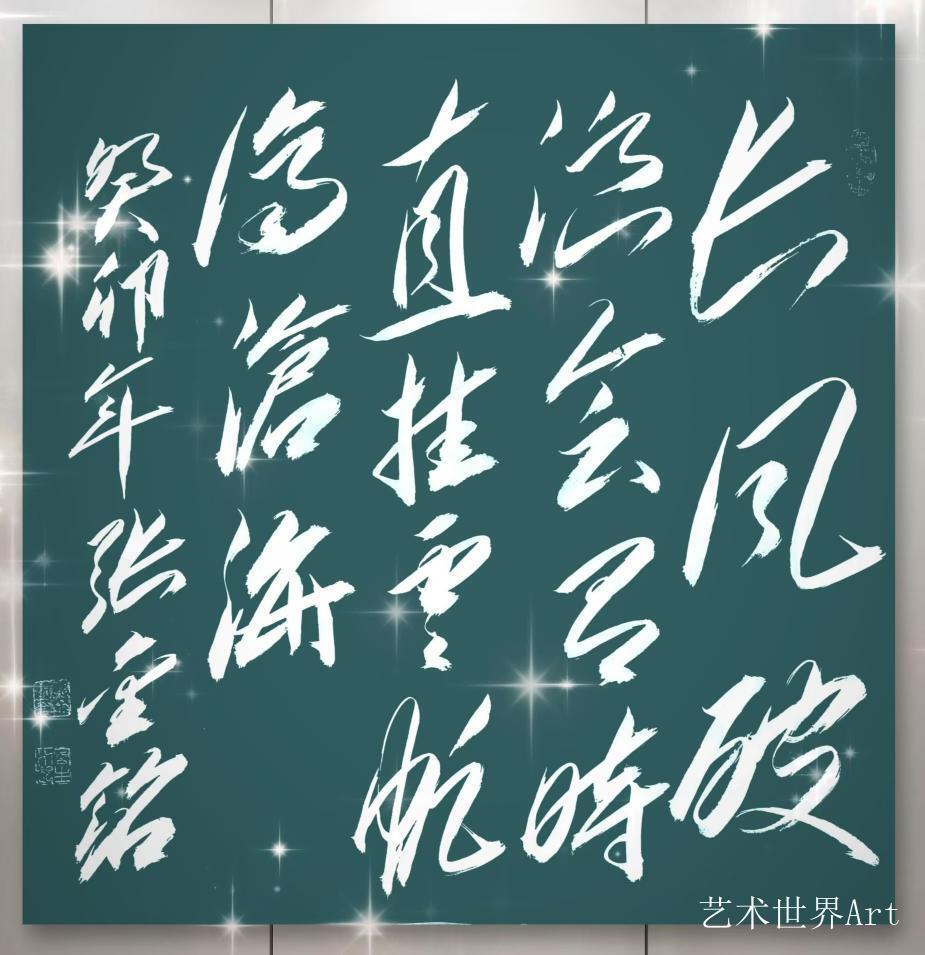 长风破
浪会有時
直挂雲帆
濟滄海
癸卯年张金铭
艺术世界Art